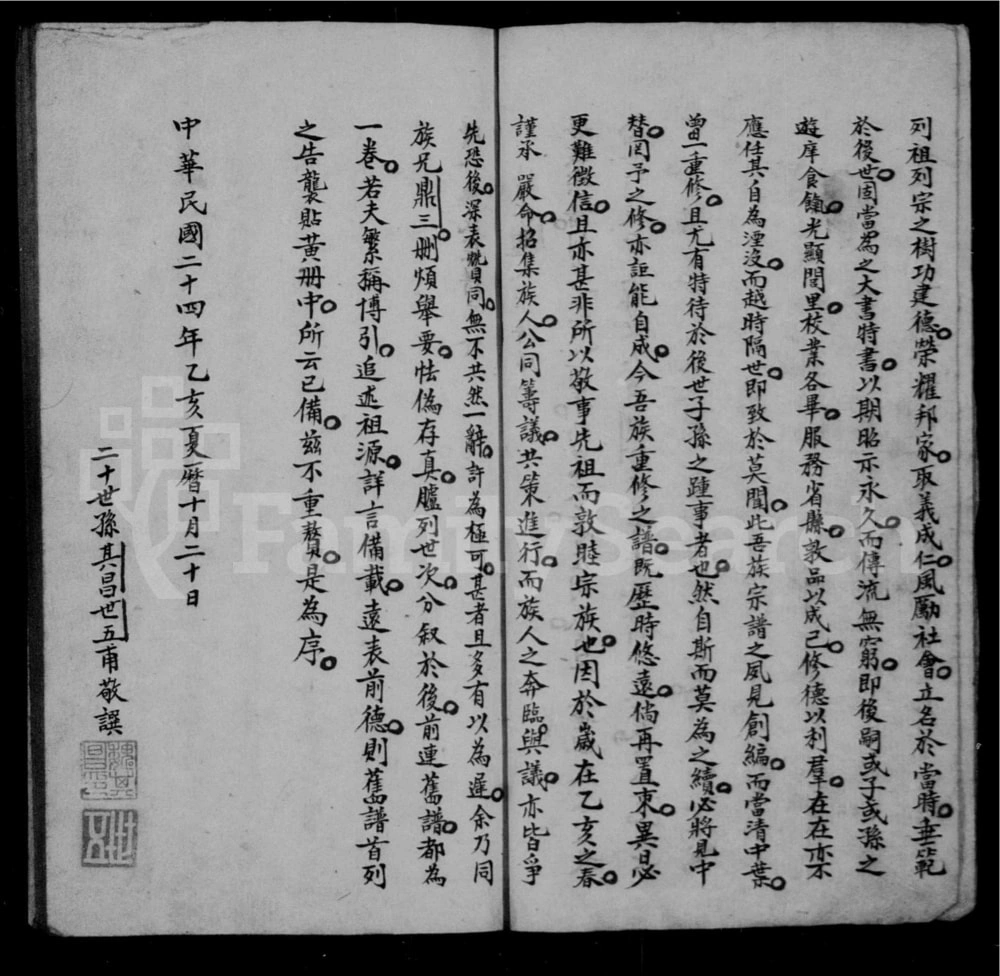 列祖列宗之樹功建德。榮耀邦家。取義成仁。風勵社會。立名於當時。垂範
於後世。固當為之大書特書。以期昭示永久。而傳流無窮。即後嗣或子或孫之
遊庠食餼。光顯閭里。校業各畢。服務省縣。敦品以成己。修德以利羣。在在亦不
應任其自為湮沒。而越時隔世。即致於莫聞。此吾族宗譜之夙見創編。而當清中葉。
曾一重修。且尤有特待於後世子孫之踵事者也。然自斯而莫為之續。必將見中
替。罔予之修。亦詎能自成。今吾族重修之譜。既歷時悠遠。倘再置束。異日必
更難徵信。且亦甚非所以敬事先祖而敦睦宗族也。因於歲在乙亥之春。
謹承 嚴命。招集族人。公同籌議。共策進行。而族人之奔臨與議。亦皆爭
先恐後。深表贊同。無不共然一辭。許為極可。甚者且多有以為遲。余乃同
族兄鼎三。刪煩舉要。怯偽存真。臚列世次。分叙於後。前連舊譜。都為
一卷。若夫繁稱博引。追述祖源。詳言備載。遠表前德。則舊譜首列
之告襲貼黃冊中。所云已備。茲不重贅。是為序。
中華民國二十四年乙亥夏曆十月二十日
二十世孫其昌世五甫敬譔
FamilySearch